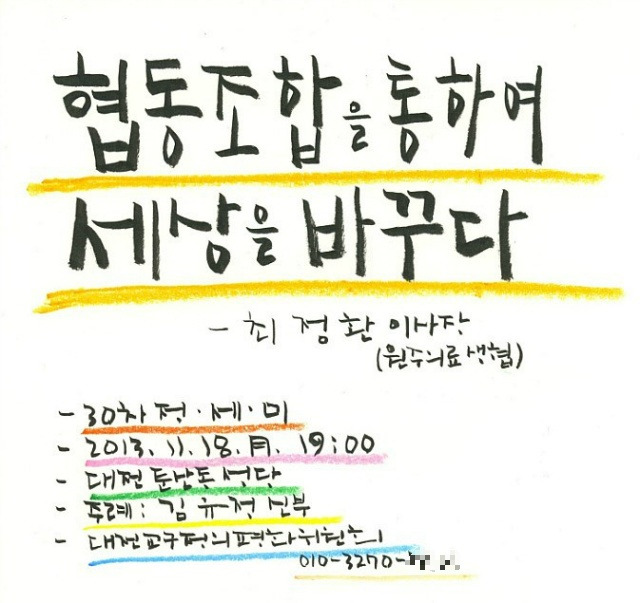 협동조합을 통하여
세상을 바꾸다
- 최정환 이사장
(원주의료생협)
- 30차 정·세·미
- 2013. 11. 18. 月. 19:00
- 대전 둔산동성당
- 주례 : 김규정 신부
- 대전교구정의평화위원회
010-3270-